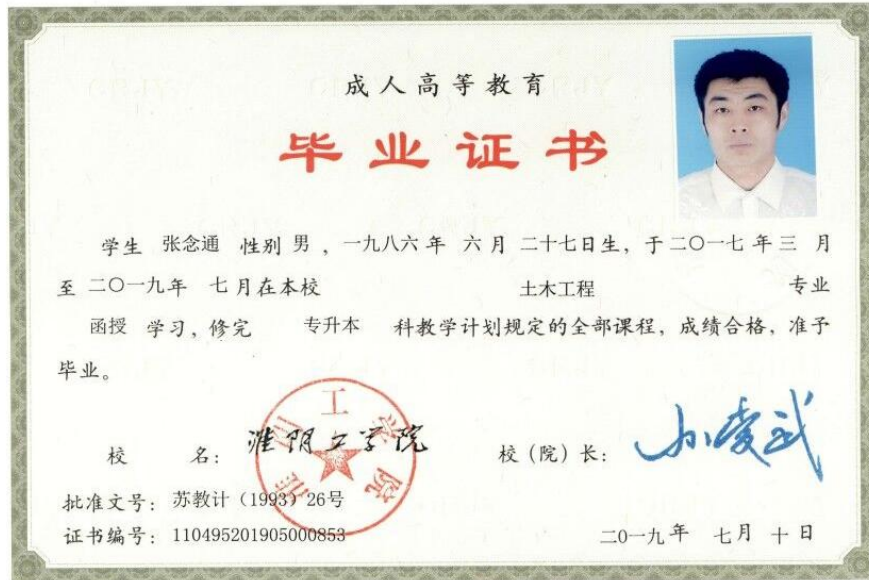 成人高等教育
毕业证书
学生 张念通 性别 男，一九八六年 六月 二十七日生，于二〇一七年三 月
至 二〇一九年 七月在本校 土木工程 专业
函授 学习，修完 专升本 科教学计划规定的全部课程，成绩合格，准予
毕业。
校 名： 淮阴工学院 校（院）长：
批准文号：苏教计（1993）26号
证书编号：110495201905000853 二〇一九年 七月 十日
淮阴工学院